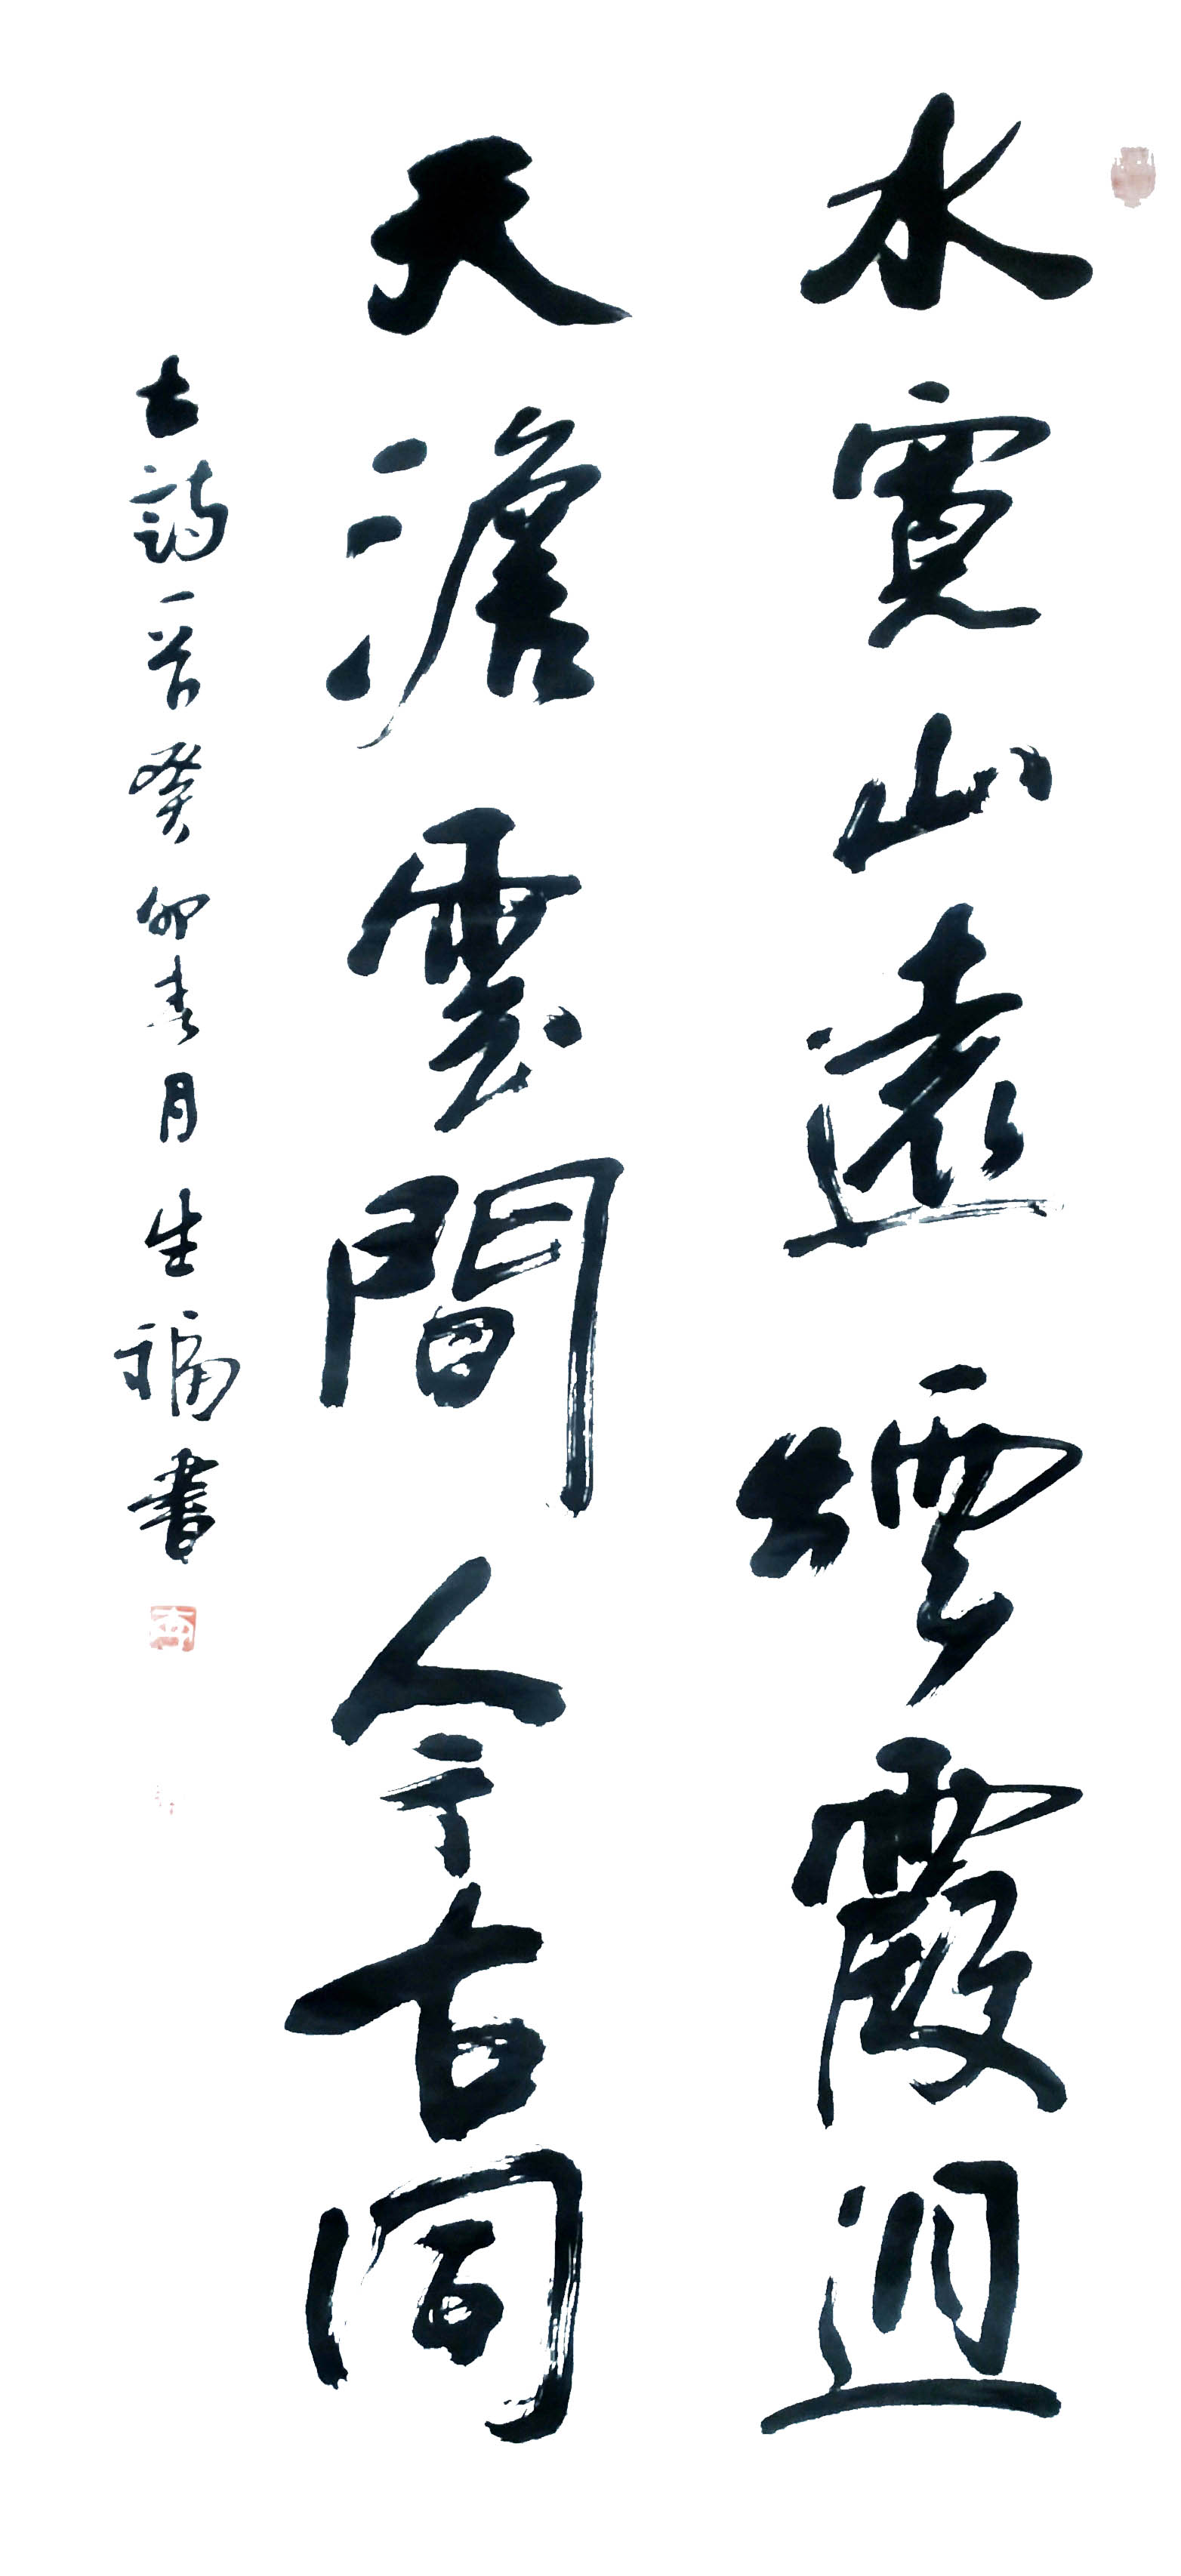 水寬山遠煙霞迥
天澹雲閒今古同
古詩一首癸卯春月生福書